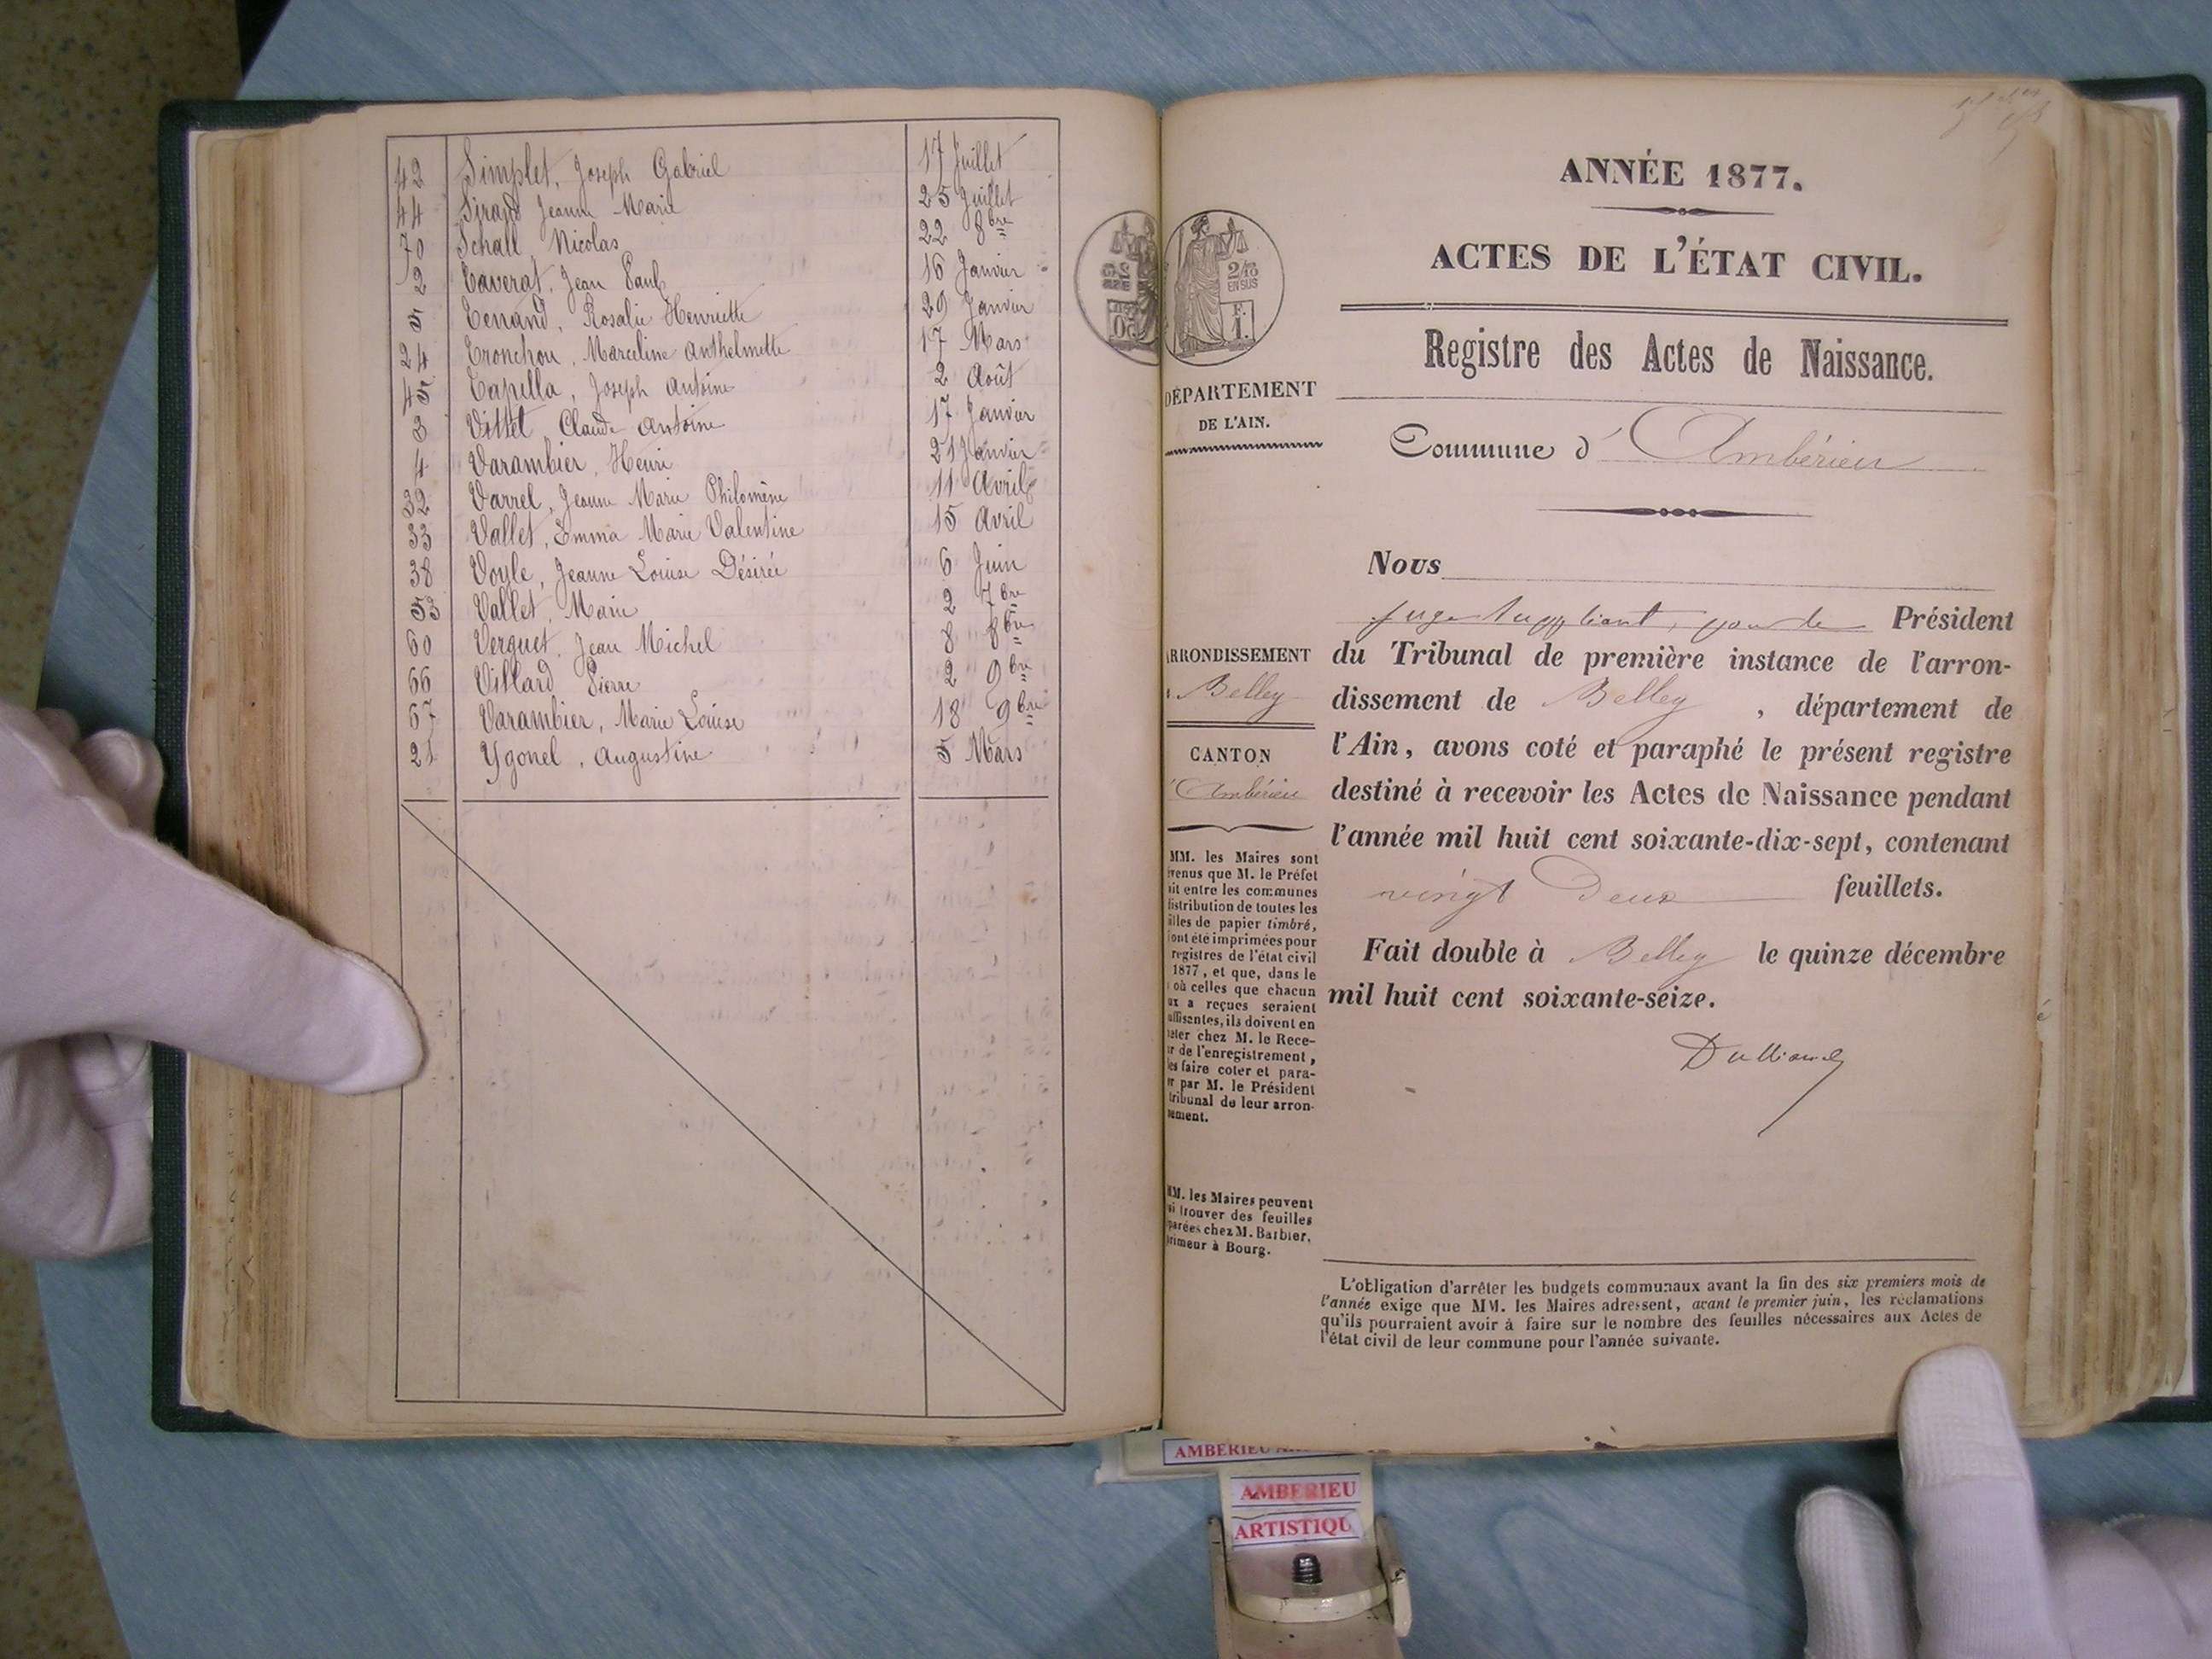 42 Simplet, Joseph Gabriel 17 Juillet
44 Jeanne Marie 25 Juillet
70 Schall Nicolas 22 8bre
2 Taverat, Jean Paul 16 Janvier
5 Tenand, Rosalie Henriette 29 Janvier
24 Tronchon, Marceline Anthelmette 17 Mars
45 Capella, Joseph Antoine 2 Août
3 Vittet Claude Antoine 17 Janvier
4 Varambier, Henri 21 Janvier
32 Varrel, Jeanne Marie Philomène 11 Avril
33 Vallet, Emma Marie Valentine 15 Avril
38 Voyle, Jeanne Louise Désirée 6 Juin
53 Vallet, Marie 2 7bre
60 Verguet, Jean Michel 8 8bre
66 Villard Pierre 2 9bre
67 Varambier, Marie Louise 18 9bre
21 Ygonel, Augustine 5 Mars
ANNÉE 1877.
ACTES DE L'ÉTAT CIVIL.
2/10
EN SUS
F.
1.
Registre des Actes de Naissance.
DÉPARTEMENT
DE L'AIN.
Commune d'Ambérieu
Nous
juge suppléant, pour le Président
du Tribunal de première instance de l'arron-
dissement de Belley, département de
l'Ain, avons coté et paraphé le présent registre
destiné à recevoir les Actes de Naissance pendant
l'année mil huit cent soixante-dix-sept, contenant
vingt Deux feuillets.
Fait double à Belley le quinze décembre
mil huit cent soixante-seize.
ARRONDISSEMENT
Belley
CANTON
Ambérieu
MM. les Maires sont
venus que M. le Préfet
it entre les communes
istribution de toutes les
illes de papier timbré,
ont été imprimées pour
registres de l'état civil
1877, et que, dans le
où celles que chacun
ux a reçues seraient
uffisantes, ils doivent en
eter chez M. le Rece-
r de l'enregistrement,
les faire coter et para-
r par M. le Président
tribunal de leur arron-
sement.
MM. les Maires peuvent
si trouver des feuilles
parées chez M. Barbier,
rimeur à Bourg.
L'obligation d'arrêter les budgets communaux avant la fin des six premiers mois de
l'année exige que MM. les Maires adressent, avant le premier juin, les réclamations
qu'ils pourraient avoir à faire sur le nombre des feuilles nécessaires aux Actes de
l'état civil de leur commune pour l'année suivante.
AMBERIEU
AMBERIEU
ARTISTIQU